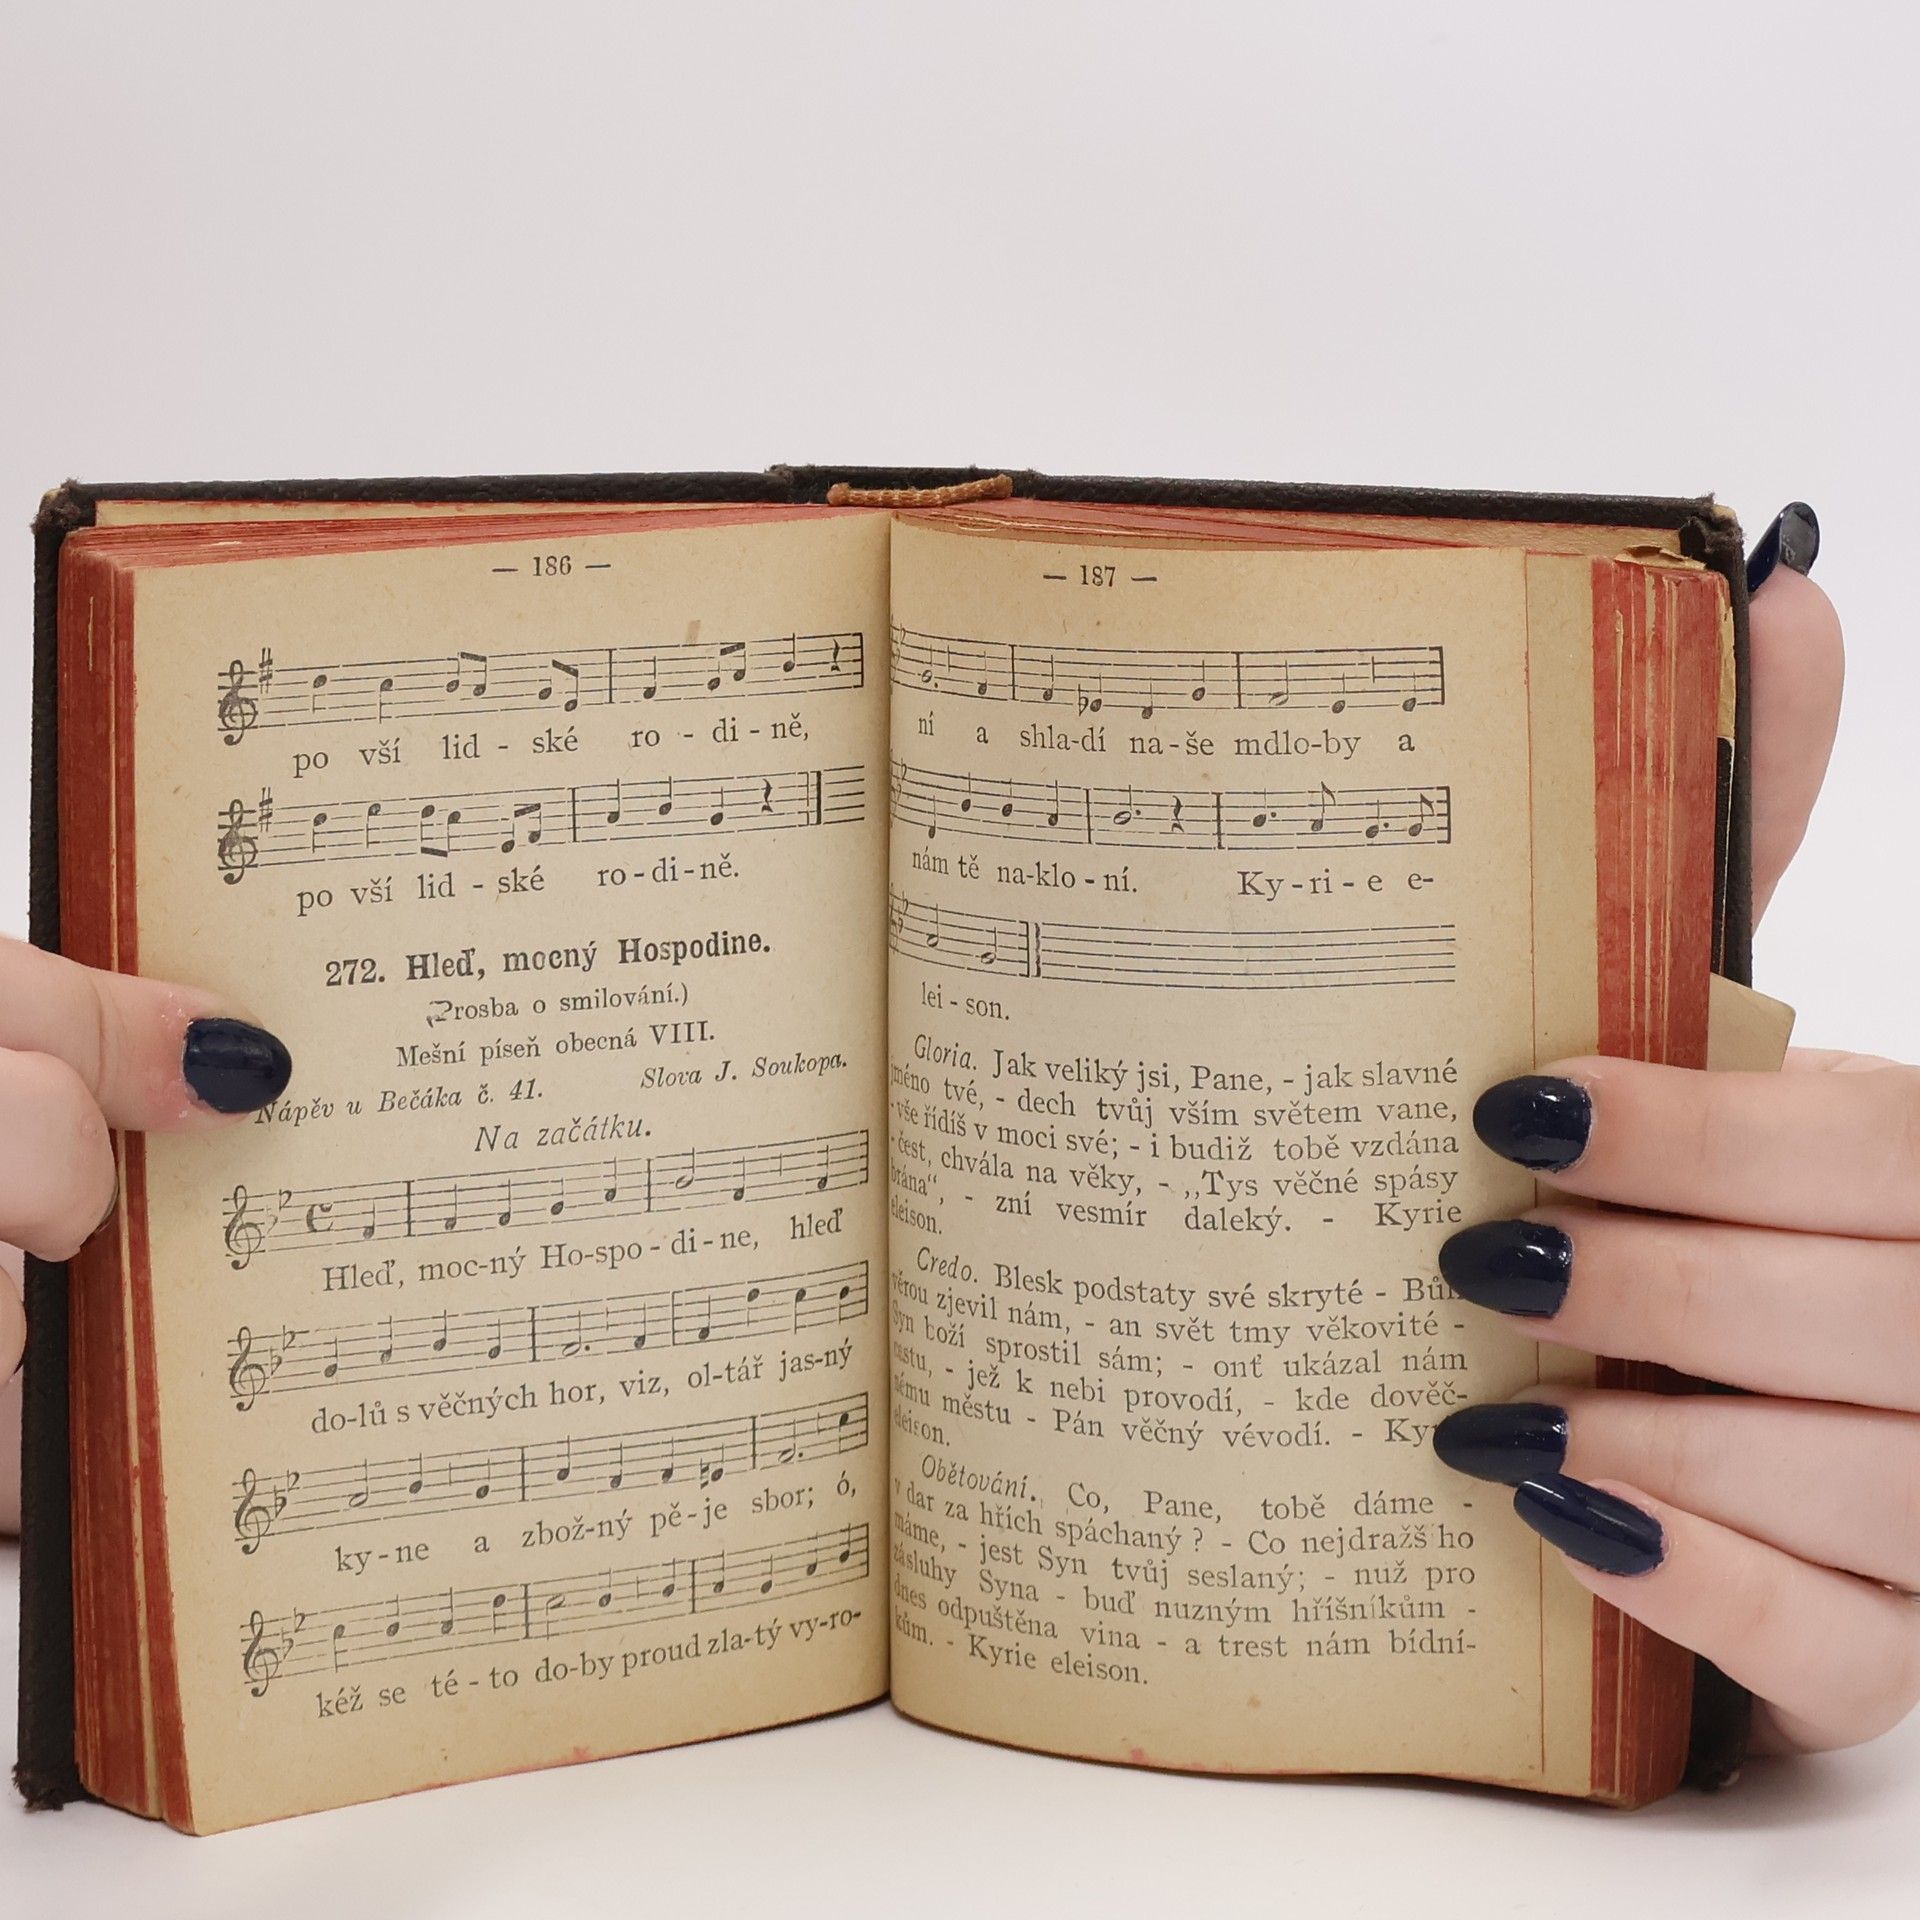 — 186 —
po vší lid - ské ro - di - ně,
po vší lid - ské ro - di - ně.
272. Hleď, mocný Hospodine.
Prosba o smilování.)
Mešní píseň obecná VIII.
Nápěv u Bečáka č. 41. Slova J. Soukopa.
Na začátku.
Hleď, moc-ný Ho-spo - di - ne, hleď
do-lů s věčných hor, viz, ol-tář jas-ný
ky - ne a zbož-ný pě - je sbor; ó,
kéž se té - to do-by proud zla-tý vy-ro-
— 187 —
ní a shla-dí na - še mdlo-by a
nám tě na-klo - ní. Ky - ri - e e-
lei - son.
Gloria. Jak veliký jsi, Pane, - jak slavné
jméno tvé, - dech tvůj vším světem vane,
- vše řídíš v moci své; - i budiž tobě vzdána
- čest, chvála na věky, - „Tys věčné spásy
brána“, - zní vesmír daleký. - Kyrie
eleison.
Credo. Blesk podstaty své skryté -
věrou zjevil nám, - an svět tmy věkovité -
Syn boží sprostil sám; - onť ukázal nám
cestu, - jež k nebi provodí, - kde dověč-
nému městu - Pán věčný vévodí. -
eleison.
Obětování. Co, Pane, tobě dáme -
v dar za hřích spáchaný? - Co nejdražš ho
máme, - jest Syn tvůj seslaný; - nuž pro
zásluhy Syna - buď nuzným hříšníkům -
dnes odpuštěna vina - a trest nám bídní-
kům. - Kyrie eleison.